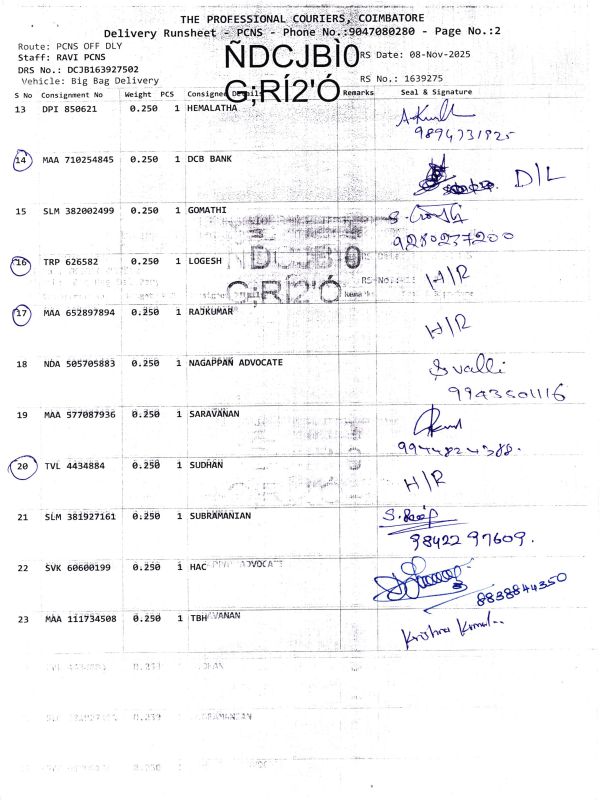 THE PROFESSIONAL COURIERS, COIMBATORE
Delivery Runsheet - PCNS - Phone No.:9047080280 - Page No.:2
Route: PCNS OFF DLY
ÑDCJBÌ0 RS Date: 08-Nov-2025
Staff: RAVI PCNS
DRS No.: DCJB163927502
Vehicle: Big Bag Delivery RS No.: 1639275
G;RÍ2'Ó
S No Consignment No Weight PCS Consignee Details Remarks Seal & Signature
13 DPI 850621 0.250 1 HEMALATHA
9894731825
14 MAA 710254845 0.250 1 DCB BANK D/L
15 SLM 382002499 0.250 1 GOMATHI
9280237200
ÑDCJBÌ0
16 TRP 626582 0.250 1 LOGESH H/R
RS No.:
G;RÍ2'Ó
17 MAA 652897894 0.250 1 RAJKUMAR H/R
18 NDA 505705883 0.250 1 NAGAPPAN ADVOCATE S valli
9943501116
19 MAA 577087936 0.250 1 SARAVANAN
9944824388.
20 TVL 4434884 0.250 1 SUDHAN H/R
21 SLM 381927161 0.250 1 SUBRAMANIAN
98422 97609.
22 SVK 60600199 0.250 1 HAC ADVOCAT
8838844350
23 MAA 111734508 0.250 1 TBH VANAN